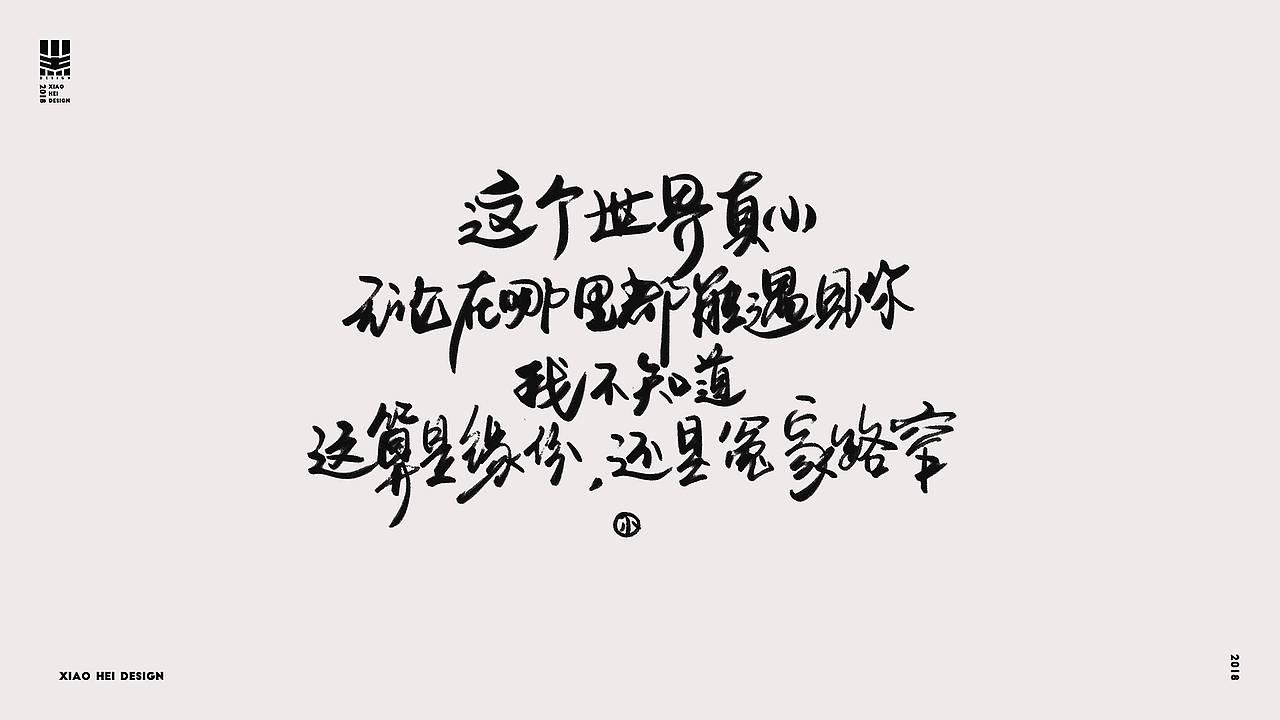 DESIGN
2018
XIAO
HEI
DESIGN
这个世界真小
无论在哪里都能遇见你
我不知道
这算是缘份,还是冤家路窄
小
XIAO HEI DESIGN
2018